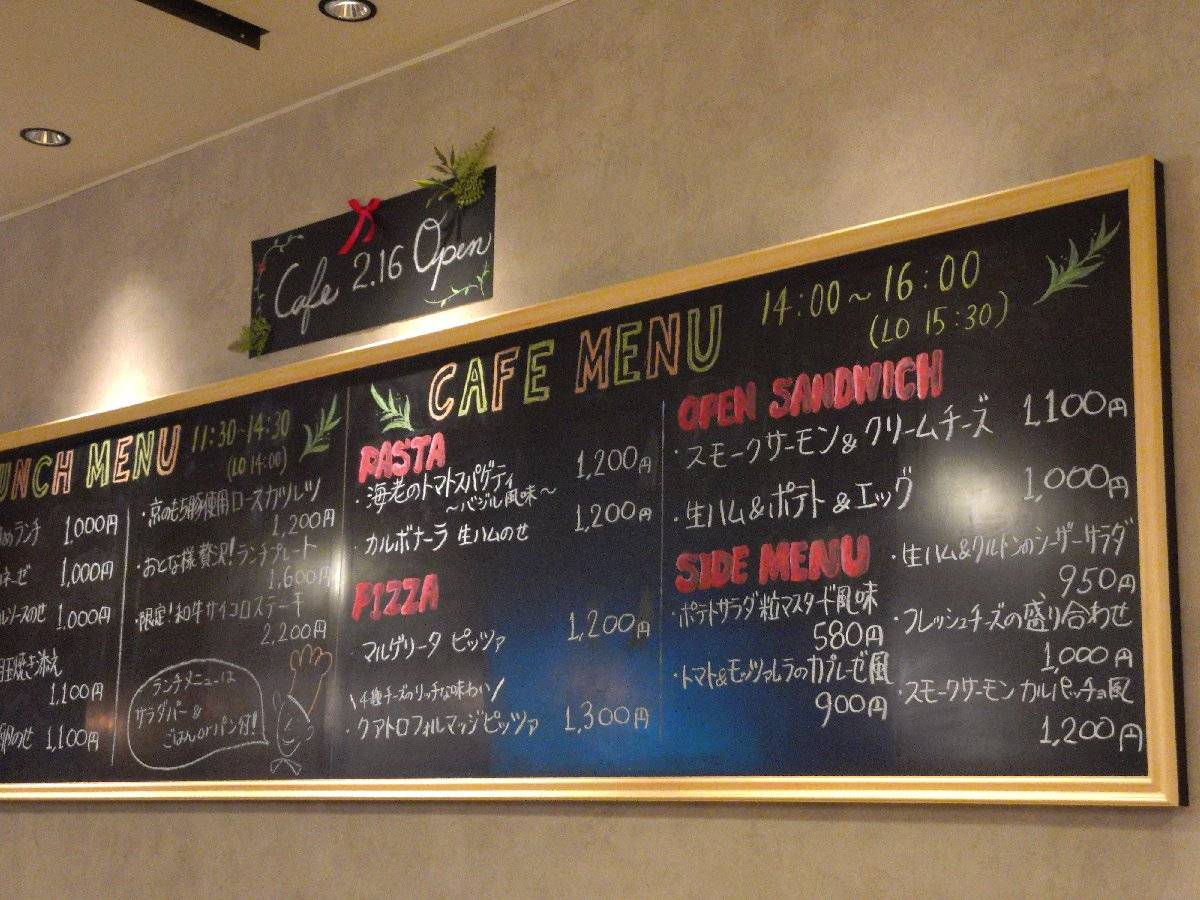 Cafe 2.16 Open
UNCH MENU 11:30~14:30
(LO 14:00)
ランチ 1000円
ネーゼ 1,000円
ルソースのせ 1,000円
目玉焼き添え
1,100円
のせ 1,100円
・京のもち豚使用ロースカツレツ
1,200円
・おとな様贅沢!ランチプレート
1,600円
・限定!和牛サイコロステーキ
2,200円
ランチメニューは
サラダバー&
ごはんorパン付!
CAFE MENU 14:00~16:00
(LO 15:30)
PASTA
・海老のトマトスパゲティ 1,200円
~バジル風味~
・カルボナーラ 生ハムのせ 1,200円
PIZZA
・マルゲリータ ピッツァ 1,200円
\4種チーズのリッチな味わい/
・クアトロフォルマッジピッツァ 1,300円
OPEN SANDWICH
・スモークサーモン&クリームチーズ 1,100円
・生ハム&ポテト&エッグ 1,000円
SIDE MENU
・ポテトサラダ 粒マスタード風味
580円
・トマト&モッツァレラのカプレーゼ風
900円
・生ハム&クルトンのシーザーサラダ
950円
・フレッシュチーズの盛り合わせ
1,000円
・スモークサーモン カルパッチョ風
1,200円